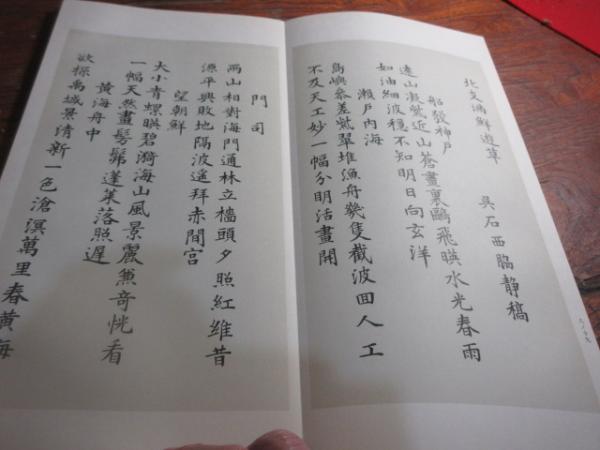 北支満鮮遊草
吳石西脇靜稿
船發神戶
遠山凝紫近山蒼畫裏鷗飛暎水光春雨
如油細波穩不知明日向玄洋
瀨戶內海
島嶼參差紫翠堆漁舟幾隻截波回人工
不及天工妙一幅分明活畫開
門司
兩山相對海門通林立檣頭夕照紅維昔
源平興敗地隔波遙拜赤間宮
望朝鮮
大小青螺暎碧漪海山風景麗兼奇恍看
一幅天然畫髣髴蓬萊落照遲
黃海舟中
欲探禹域景清新一色滄溟萬里春黃海